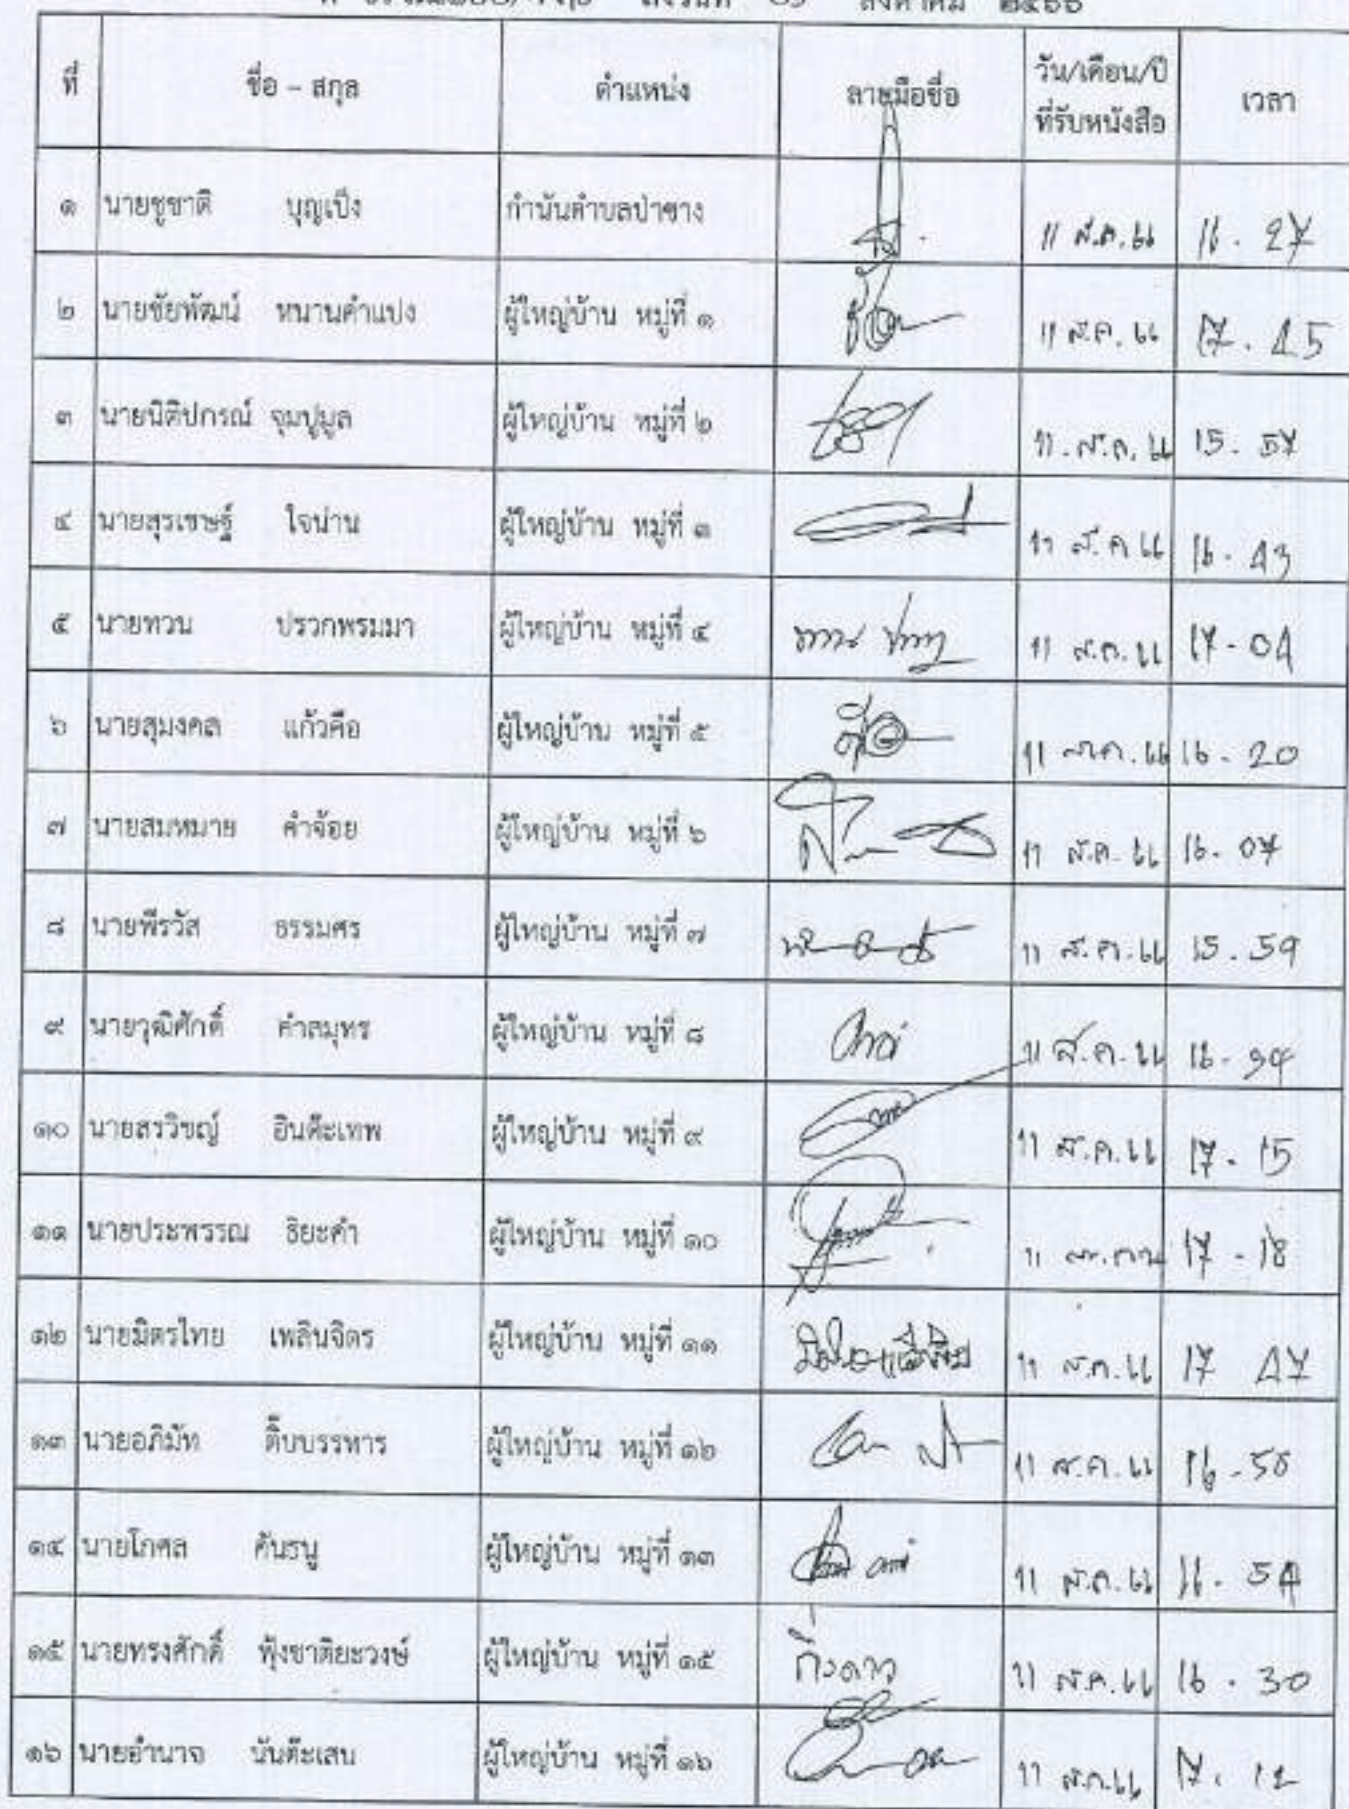 ลงวันที่ สิงหาคม ๒๕๖๖
ที่ ชื่อ - สกุล ตำแหน่ง ลายมือชื่อ วัน/เดือน/ปี ที่รับหนังสือ เวลา
๑ นายชูชาติ บุญเป็ง กำนันตำบลป่าซาง 11 ส.ค. 66 16 . 27
๒ นายชัยพัฒน์ หนานคำแปง ผู้ใหญ่บ้าน หมู่ที่ ๑ 11 ส.ค. 66 17 . 45
๓ นายนิติปกรณ์ จุมปูมูล ผู้ใหญ่บ้าน หมู่ที่ ๒ 11 . ส.ค. 66 15 . 57
๔ นายสุรเชษฐ์ ใจน่าน ผู้ใหญ่บ้าน หมู่ที่ ๓ 11 ส.ค 66 16 . 43
๕ นายทวน ปรวกพรมมา ผู้ใหญ่บ้าน หมู่ที่ ๔ 11 ส.ค. 66 17 - 04
๖ นายสุมงคล แก้วคือ ผู้ใหญ่บ้าน หมู่ที่ ๕ 11 ส.ค. 66 16 - 20
๗ นายสมหมาย คำจ้อย ผู้ใหญ่บ้าน หมู่ที่ ๖ 11 ส.ค. 66 16 - 07
๘ นายพีรวัส ธรรมศร ผู้ใหญ่บ้าน หมู่ที่ ๗ 11 ส.ค. 66 15 . 59
๙ นายวุฒิศักดิ์ คำสมุทร ผู้ใหญ่บ้าน หมู่ที่ ๘ 11 ส.ค. 66
๑๐ นายสรวิชญ์ อินต๊ะเทพ ผู้ใหญ่บ้าน หมู่ที่ ๙ 11 ส.ค. 66 17 - 15
๑๑ นายประพรรณ ธิยะคำ ผู้ใหญ่บ้าน หมู่ที่ ๑๐ 11 17 - 18
๑๒ นายมิตรไทย เพลินจิตร ผู้ใหญ่บ้าน หมู่ที่ ๑๑ 11 ส.ค. 66 17 47
๑๓ นายอภิมัท ติ๊บบรรหาร ผู้ใหญ่บ้าน หมู่ที่ ๑๒ 11 ส.ค. 66
๑๔ นายโกศล คันธนู ผู้ใหญ่บ้าน หมู่ที่ ๑๓ 11 ส.ค. 66 16 . 54
๑๕ นายทรงศักดิ์ ฟุ้งชาติยะวงษ์ ผู้ใหญ่บ้าน หมู่ที่ ๑๕ กิ่งดาว 11 ส.ค. 66 16 . 30
๑๖ นายอำนาจ นันต๊ะเสน ผู้ใหญ่บ้าน หมู่ที่ ๑๖ 11 ส.ค. 66 17 . 12